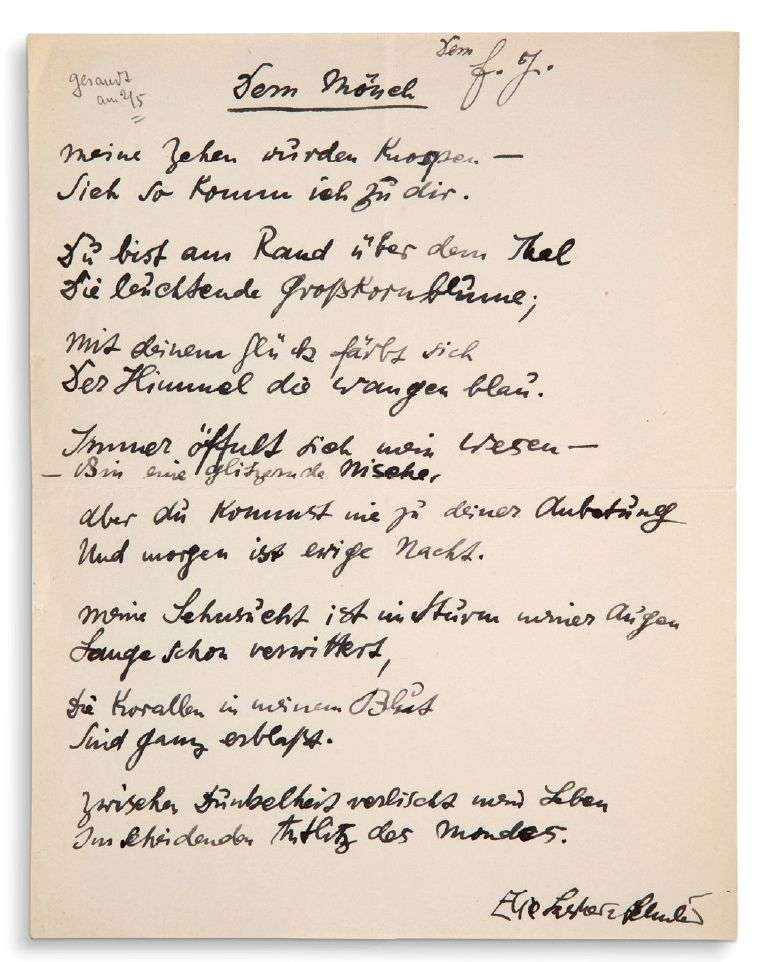 Dem
gesandt
am 2/5
Dem Mönch
f. J.
Meine Zehen wurden Knospen —
Sieh so komm ich zu dir.
Du bist am Rand über dem Thal
Die leuchtende Großkornblume;
Mit deinem Glück färbt sich
Der Himmel die Wangen blau.
Immer öffnet sich mein Wesen —
— Bin eine glitzernde Nische,
aber du kommst nie zu deiner Anbetung
Und morgen ist ewige Nacht.
Meine Sehnsucht ist im Sturm meiner Augen
Lange schon verwittert,
Die Korallen in meinem Blut
Sind ganz erblaßt.
Zwischen Dunkelheit verlischt mein Leben
Im scheidenden Antlitz des Mondes.
Else Lasker-Schüler